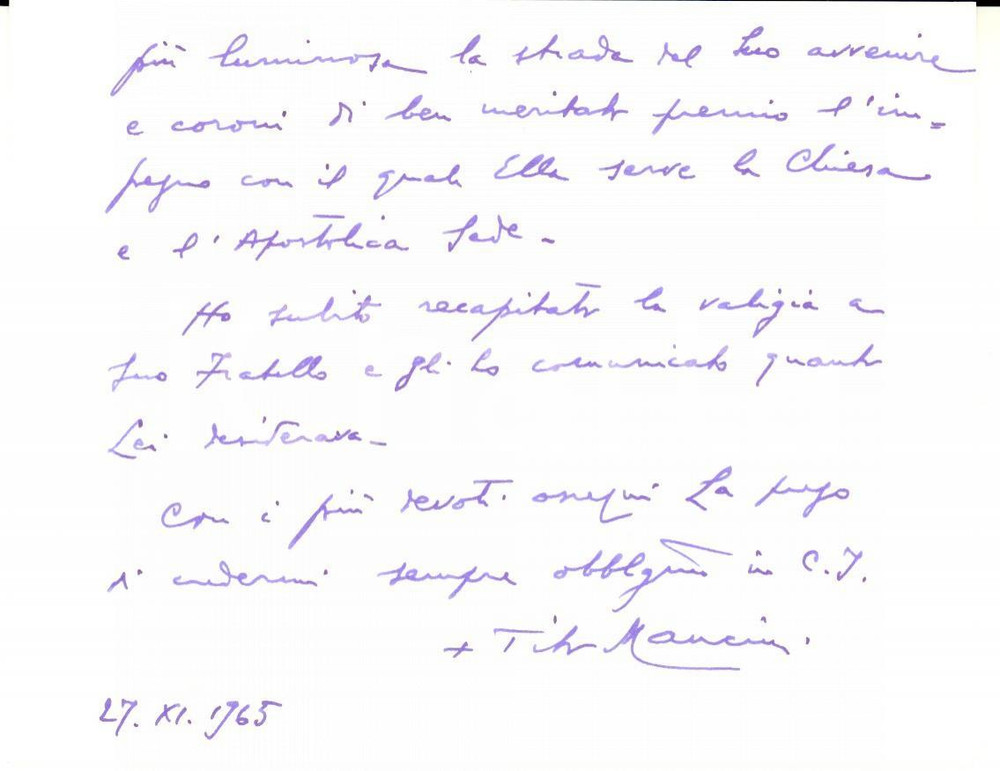 più luminosa la strada del Suo avvenire
e coroni di ben meritato premio l'im=
pegno con il quale Ella serve la Chiesa
e l'Apostolica Sede -
Ho subito recapitato la valigia a
Suo Fratello e gli ho comunicato quanto
Lei desiderava -
Con i più devoti ossequi La prego
di credermi sempre obbl̄gm̄o in C.J.
+ Tito Mancini
27. XI. 1965